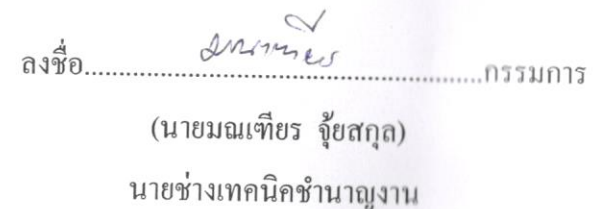 ลงชื่อ................................................................กรรมการ
(นายมณเฑียร จุ้ยสกุล)
นายช่างเทคนิคชำนาญงาน